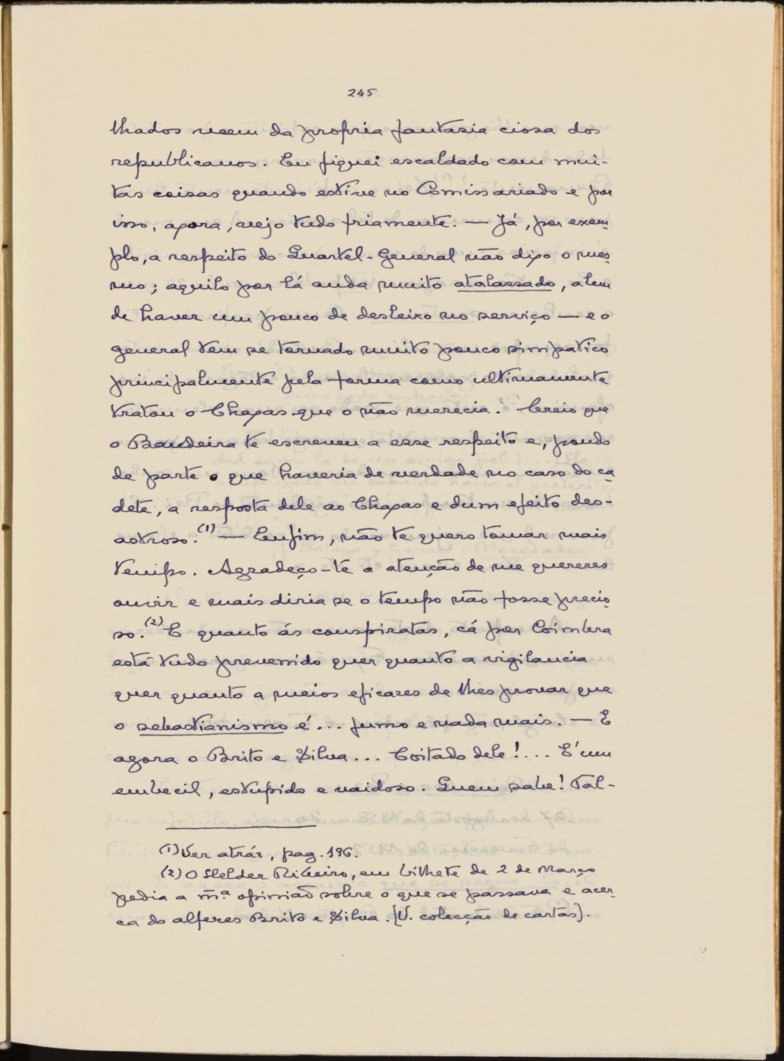 245
lhados veem da propria fantasia ciosa dos
republicanos. Eu fiquei escaldado com mui-
tas coisas quando estive no Comissariado e por
isso, agora, vejo tudo friamente. — Já, por exem-
plo, a respeito do Quartel-General não digo o mes-
mo; aquilo por lá anda muito atalassado, alem
de haver um pouco de desleixo no serviço — e o
general tem se tornado muito pouco simpatico
principalmente pela forma como ultimamente
tratou o Chagas que o não merecia. Creio que
o Bandeira te escreveu a esse respeito e, pondo
de parte o que haveria de verdade no caso do ca-
dete, a resposta dele ao Chagas e dum efeito des-
astroso.(1) — Emfim, não te quero tomar mais
tempo. Agradeço-te a atenção de me quereres
ouvir e mais diria se o tempo não fosse precio-
so.(2) E quanto ás conspiratas, cá por Coimbra
está tudo prevenido quer quanto a vigilancia
quer quanto a meios eficazes de lhes provar que
o sebastianismo é... fumo e nada mais. — E
agora o Brito e Silva... Coitado dele!... E' um
embecil, estupido e vaidoso. Quem sabe! Tal-
(1) Ver atrás, pag. 196.
(2) O Helder Ribeiro, em bilhete de 2 de Março
pedia a m.ª opinião sobre o que se passava e acer-
ca do alferes Brito e Silva. [V. colecção de cartas].